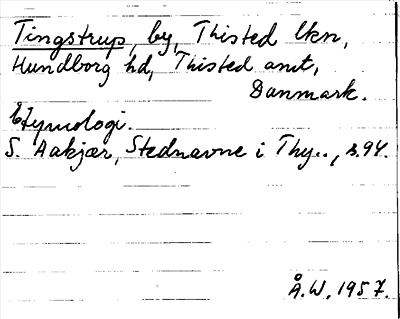 Tingstrup, by, Thisted lkn,
Hundborg hd, Thisted amt,
Danmark.
Etymologi.
S. Aakjær, Stednavne i Thy.., s.94.
Å.W. 1957.